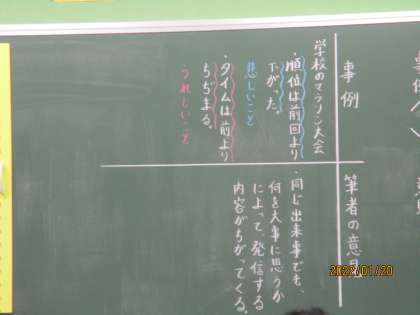 事例
学校のマラソン大会
・順位は前回より
下がった。
悲しいこと
・タイムは前より
ちぢまる。
うれしいこと
筆者の意見
・同じ出来事でも、
何を大事に思うか
によって、発信する
内容がちがってくる。
2022/01/20